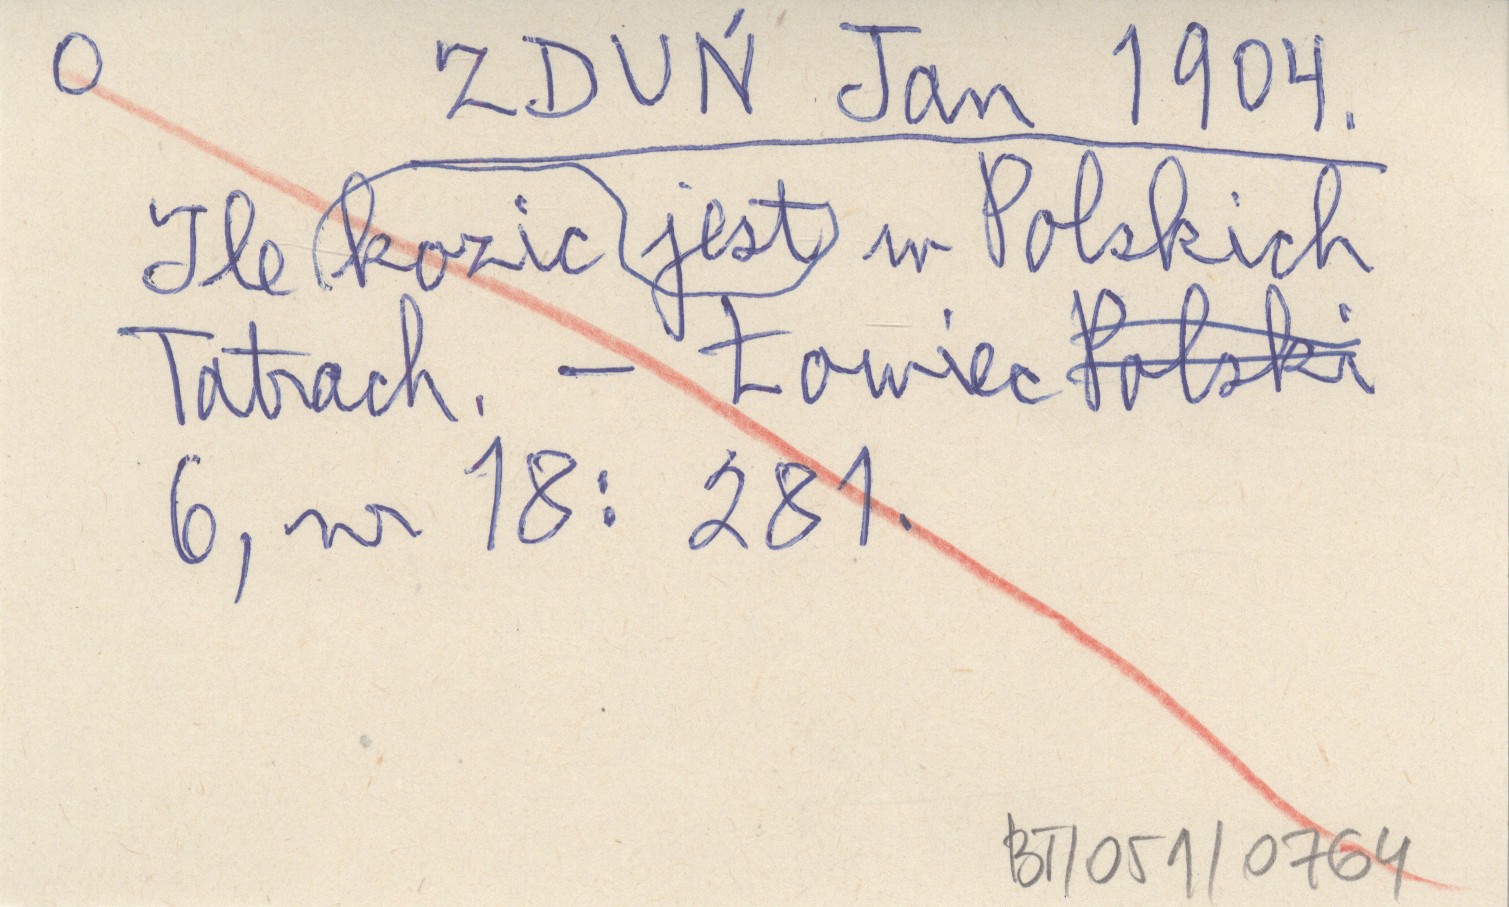 O
ZDUŃ Jan 1904.
Ile kozic jest w Polskich
Tatrach. – Łowiec Polski
6, nr 18: 281.
BT/051/0764